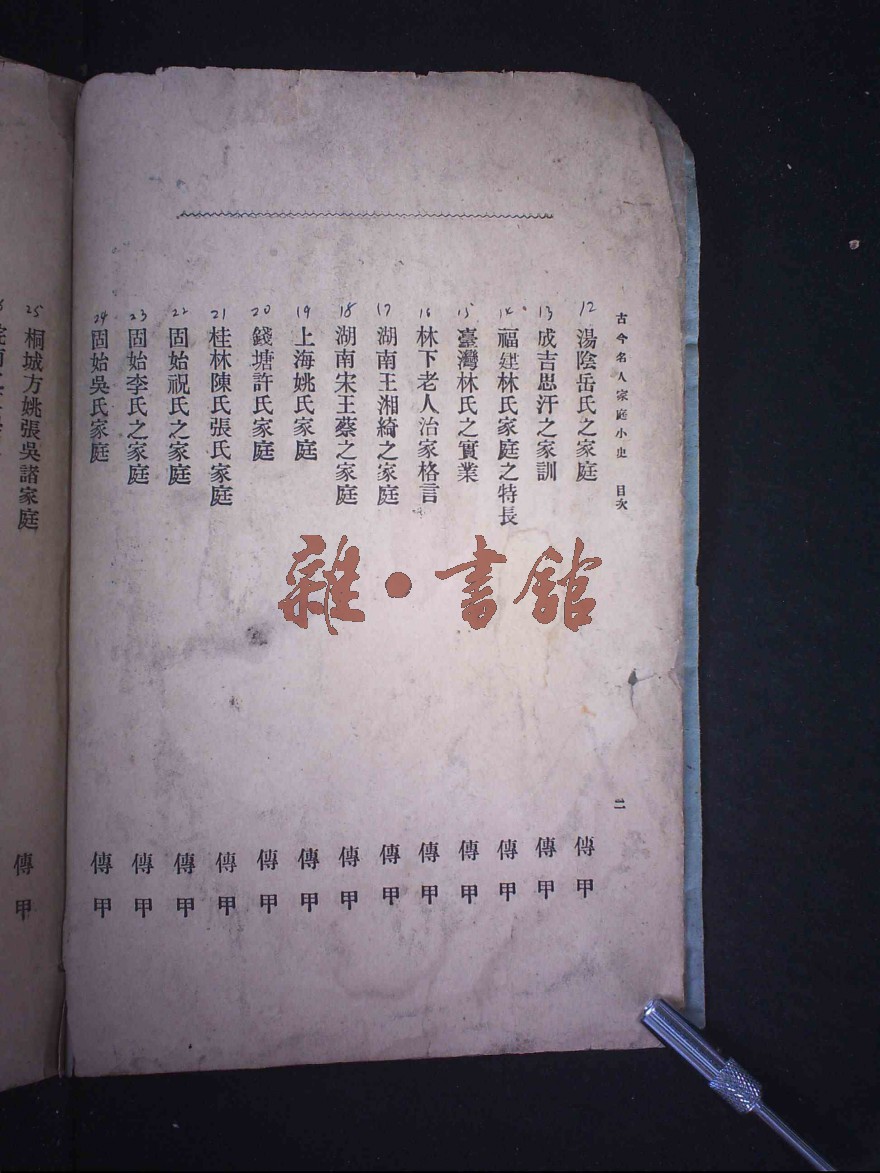 古今名人家庭小史 目次 二
12 湯陰岳氏之家庭 傳甲
13 成吉思汗之家訓 傳甲
14 福建林氏家庭之特長 傳甲
15 臺灣林氏之實業 傳甲
16 林下老人治家格言 傳甲
17 湖南王湘綺之家庭 傳甲
18 湖南宋王蔡之家庭 傳甲
19 上海姚氏家庭 傳甲
20 錢塘許氏家庭 傳甲
21 桂林陳氏張氏家庭 傳甲
22 固始祝氏之家庭 傳甲
23 固始李氏之家庭 傳甲
24 固始吳氏家庭 傳甲
25 桐城方姚張吳諸家庭 傳甲
雜·書館